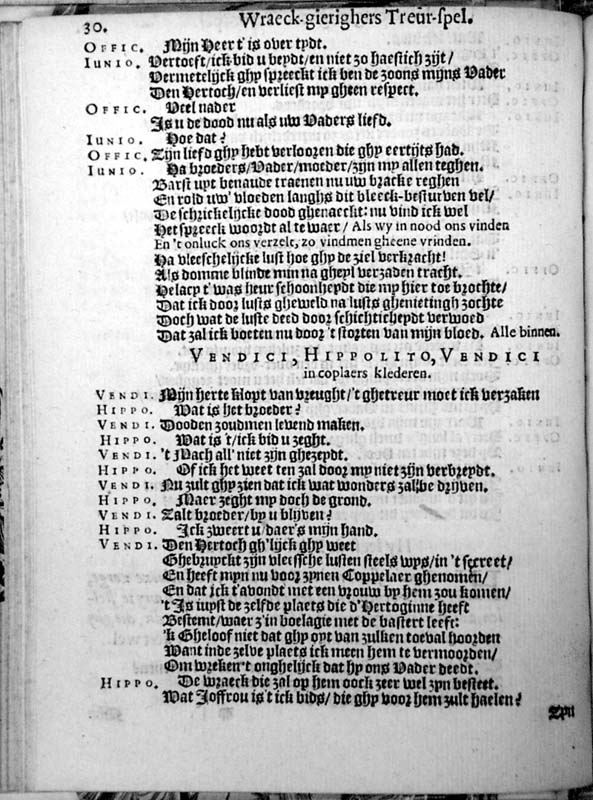 30. Wraeck-gierighers Treur-spel.
OFFIC. Mijn Heer t'is over tydt.
IUNIO. Vertoeft/ick bid u beydt/en niet zo haestich zijt/
Vermetelijck ghy spreeckt ick ben de zoons mijns Vader
Den Hertoch/en verliest my gheen respect.
OFFIC. Veel nader
Is u de dood nu als uw Vaders liefd.
IUNIO. Hoe dat?
OFFIC. Zijn liefd ghy hebt verlooren die ghy eertijts had.
IUNIO. Ha broeders/Vader/moeder/zijn my allen teghen.
Barst uyt benaude traenen nu uw bracke reghen
En rold uw' vloeden langhs dit bleeck-besturven vel/
De schrickelijcke dood ghenaeckt: nu vind ick wel
Het spreeck woordt al te waer/ Als wy in nood ons vinden
En 't onluck ons verzelt, zo vindmen gheene vrinden.
Ha vleeschelijcke lust hoe ghy de ziel verkracht!
Als domme blinde min na gheyl verzaden tracht.
Helacy t' was heur schoonheydt die my hier toe brochte/
Dat ick door lusts gheweld na lusts ghenietingh zochte
Doch wat de luste deed door schichticheydt verwoed
Dat zal ick boeten nu door 't storten van mijn bloed. Alle binnen.
VENDICI, HIPPOLITO, VENDICI
in coplaers klederen.
VENDI. Mijn herte klopt van vreught/'t ghetreur moet ick verzaken
HIPPO. Wat is het broeder?
VENDI. Dooden zoudmen levend maken.
HIPPO. Wat is 't/ick bid u zeght.
VENDI. 't Mach all' niet zijn ghezeydt.
HIPPO. Of ick het weet ten zal door my niet zijn verbreydt.
VENDI. Nu zult ghy zien dat ick wat wonders zal be dryven.
HIPPO. Maer zeght my doch de grond.
VENDI. Zalt broeder/by u blyven?
HIPPO. Ick zweert u/daer's mijn hand.
VENDI. Den Hertoch gh'lijck ghy weet
Ghebruyckt zijn vleessche lusten steels wys/in 't secreet/
En heeft myn nu voor zynen Coppelaer ghenomen/
En dat ick t'avondt met een vrouw by hem zou komen/
't Is juyst de zelfde plaets die d'Hertoginne heeft
Bestemt/waer z'in boelagie met de bastert leeft:
'k Gheloof niet dat ghy oyt van zulken toeval hoorden
Want inde zelve plaets ick meen hem te vermoorden/
Om wreken't onghelijck dat hy ons Vader deedt.
HIPPO. De wraeck die zal op hem oock zeer wel zyn besteet.
Wat Joffrou is't ick bids/ die ghy voor hem zult haelen?
Zyn